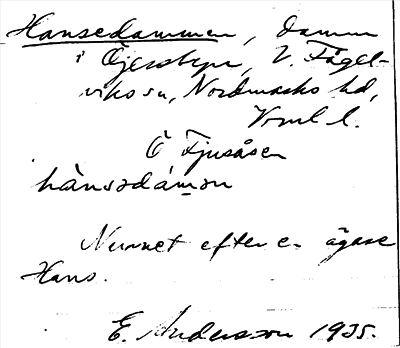 Hansedammen, damm
i Öjersbyn, V. Fågel-
viks sn, Nordmarks hd,
Vrml l.
Ö Fjusåsen
hànsədámən
Namnet efter en ägare
Hans.
E. Andersson 1935.